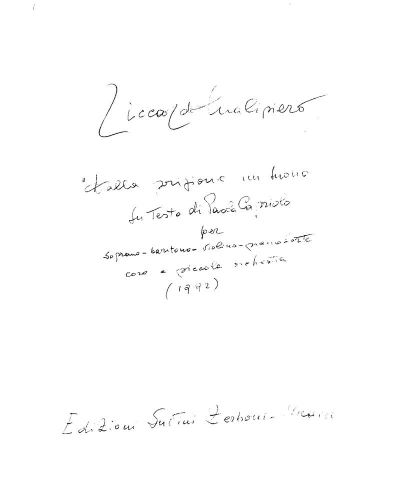 Riccardo Malipiero
dalla prigione un suono
su Testo di Paolà Ca
per
soprano-baritono-violino-pianoforte
coro e piccola orchestra
(1992)
Edizioni Suvini Zerboni-Milano